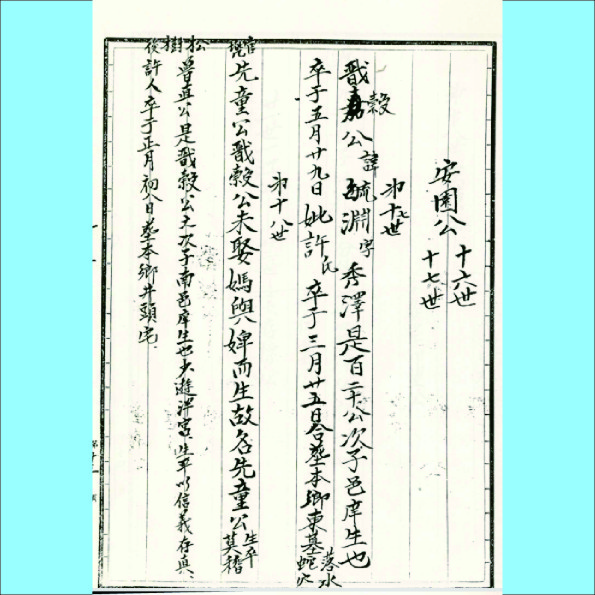 十六世
安園公
十七世
第十七世
戩穀公諱毓淵字秀澤是百二十公次子邑庠生也
卒于五月廿九日妣許氏卒于三月廿五日合葬本鄉東墓落水蛇穴
第十八世
先童公戩穀公未娶媽與婢而生故名先童公生卒莫稽
曾真公是戩穀公之次子南邑庠生也少遊泮宮生平以信義存真
許人卒于正月初八日葬本鄉井頭宅
松樹